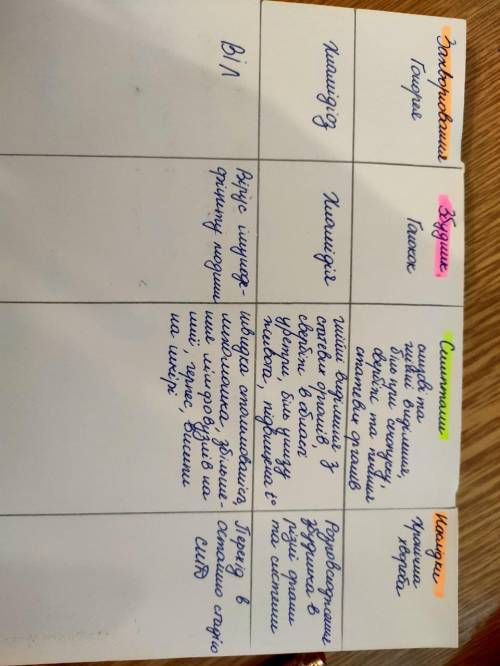 Захворювання
Збудник
Симптоми
Наслідки
Гонорея
Гонокок
слизові та
гнійні виділення,
біль при сечопуску,
свербіж та печіння
статевих органів
Хронічна
хвороба
Хламідіоз
Хламідія
гнійні виділення з
статевих органів,
свербіж в області
уретри, біль унизу
живота, підвищена t°
Розповсюдження
збудника в
різні органи
та системи
ВІЛ
Вірус імуноде-
фіциту людини
швидка стомлюваність,
лихоманка, збільше-
ння лімфовузлів на
шиї, герпес, висипи
на шкірі
Перехід в
останню стадію
СНІД